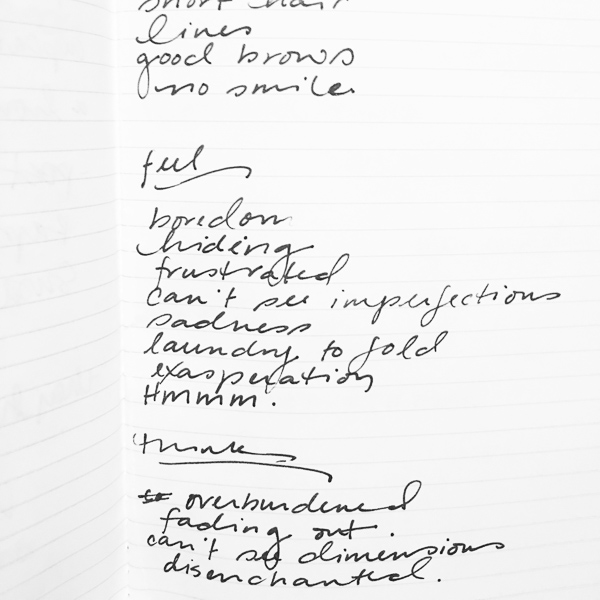 short hair
lines
good brows
no smile.
feel
boredom
hiding
frustrated
can't see imperfections
sadness
laundry to fold
exasperation
Hmmm.
think
overburdened
fading out.
can't see dimensions
disenchanted.